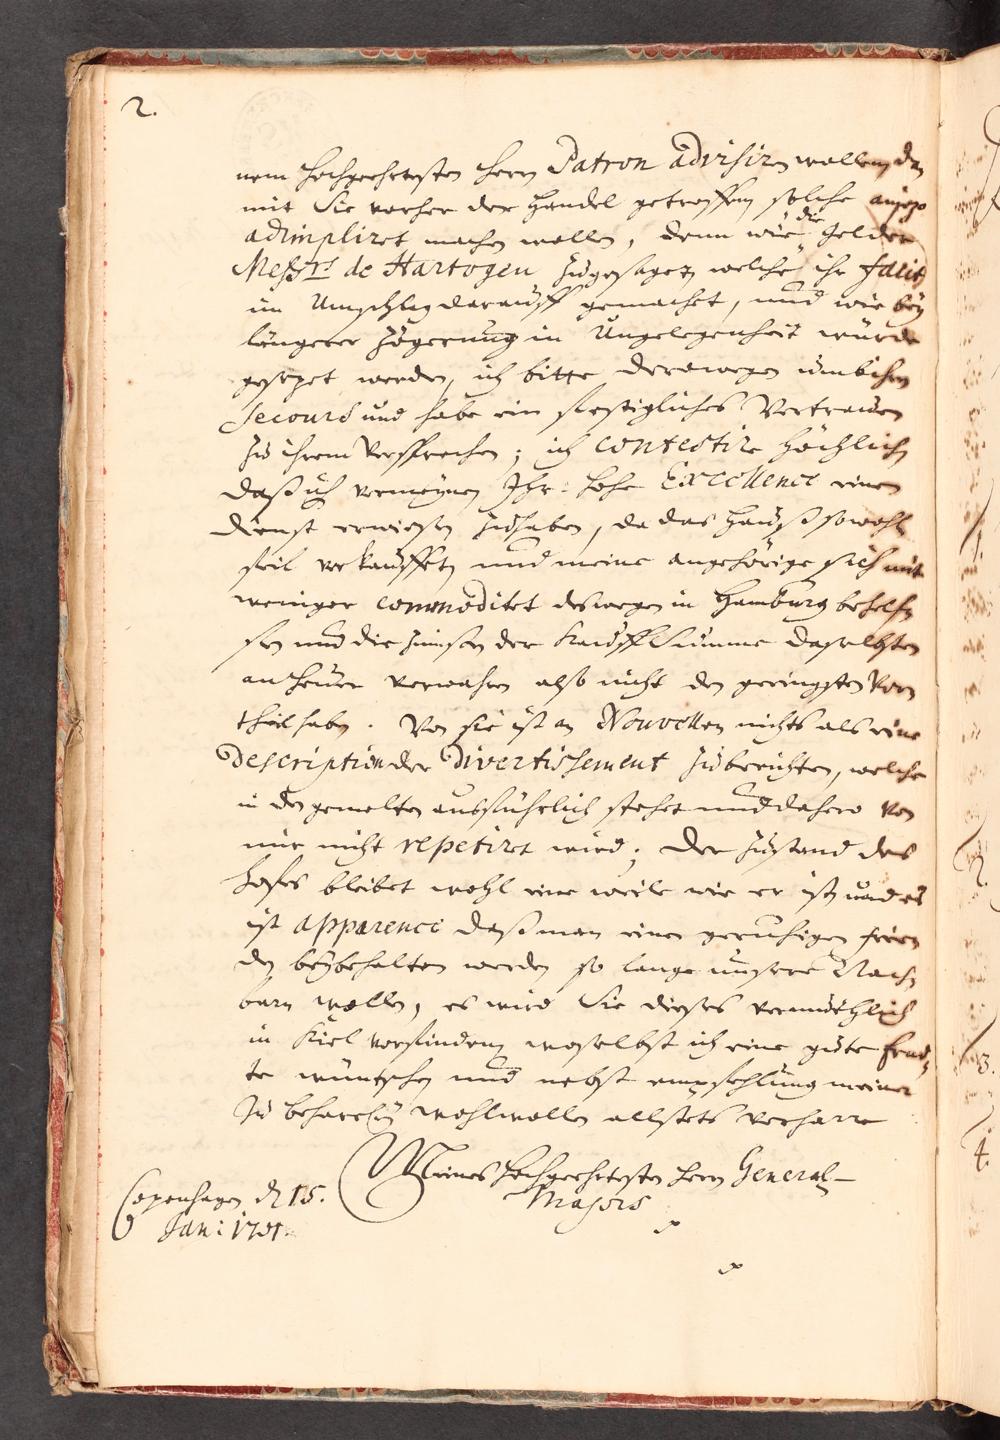 2.
nem hochgeehrtesten Herrn Patron advisiren wollen, da
mit Sie vorher der Handel getroffen solche anjezo
adimpliret machen wollen, denn wir die gelder
Messrs. de Hartogen zugesaget, welche ihr facit
im Umschlag darauff gemachet, und wir bey
längerer Zögerung in Ungelegenheit würde
gesezet werden, ich bitte derowegen umb ihren
Secours und habe ein festigliches Vertrauen
zu ihrem Versprechen; ich contestire höchlich
daß ich vermeynet Ihr: hohe Excellence einen
dienst erwiesen zu haben, da das Hauß sowohl
feil verkauffet und meine angehörige sich mit
weniger commoditet deswegen in Hamburg behelf
fen und die Zinsen der Kauff Summe daselbsten
an Heüer verwahren also nicht den geringsten Vor
theil haben. Von hie ist an Nouvellen nichts als eine
Description der Divertissement zu berichten, welche
in den gemelten ausführlich stehet und dahero von
mir nicht repetiret wird; der Zustand des
Hofes bleibet wohl eine weile wie er ist, und es
ist apparence daß man einen geruhigen frie
den beybehalten werde so lange unsere Nach
barn wollen, es wird Sie dieses vermuthlich
in Kiel vorfinden, woselbst ich eine gute
te wüntsche und nebst empfehlung meiner
zu beharrlig wohlwollen allstets verharre
Meines Hochgeehrtesten Herrn General-
Majors
Copenhagen d 15.
Jan: 1701.